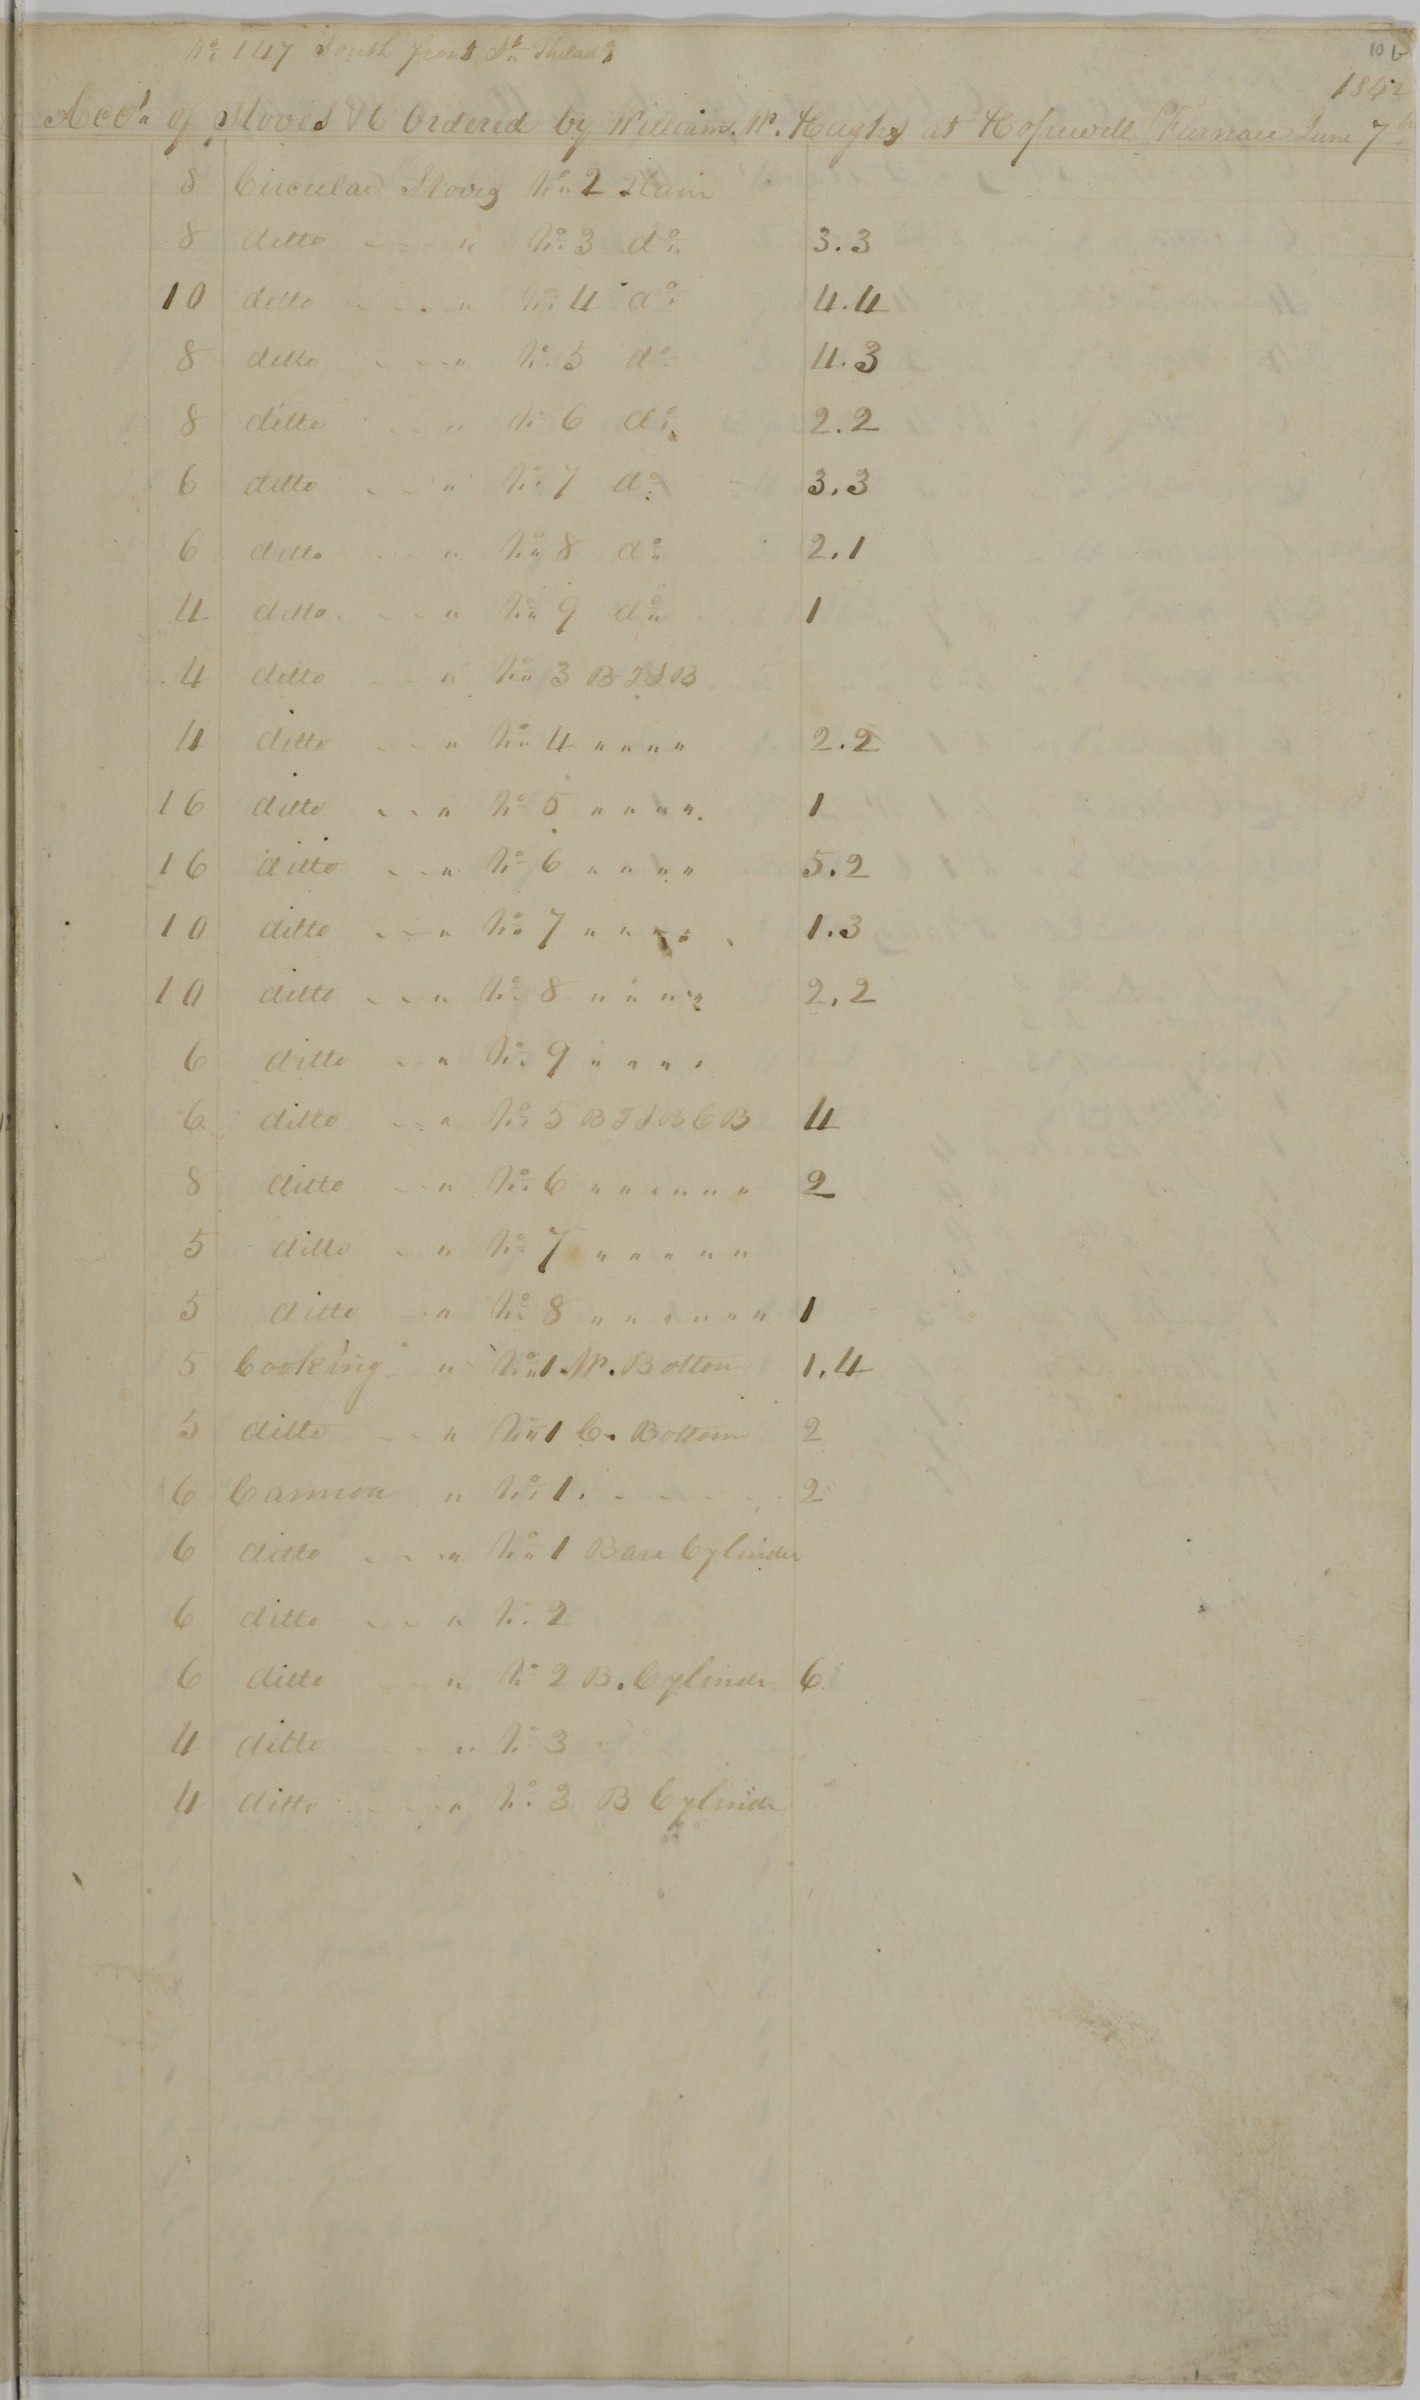 No. 147 South front St. Philada
10 b
1842
Acct. of Stoves &c Ordered by William. W. Hughes at Hopewell Furnace June 7th
8 Circular Stoves No. 2 Plain
8 ditto - - " No. 3 do. 3.3
10 ditto - - - " No. 4 do. 4.4
8 ditto - - - " No. 5 do. 4.3
8 ditto - - " No. 6 do. 2.2
6 ditto - - " No. 7 do. 3.3
6 ditto - - " No. 8 do. 2.1
4 ditto - - " No. 9 do. 1
4 ditto - - " No. 3 B T S B
4 ditto - - " No. 4 " " " " 2.2
16 ditto - - " No. 5 " " " " 1
16 ditto - - " No. 6 " " " " 5.2
10 ditto - - " No. 7 " " " " 1.3
10 ditto - - " No. 8 " " " " 2.2
6 ditto - " No. 9 " " " "
6 ditto - - " No. 5 B T S B C B 4
8 ditto - - " No. 6 " " " " " " 2
5 ditto - " No. 7 " " " " "
5 ditto - - " No. 8 " " " " " " 1
5 Cooking " No. 1. W. Bottom 1.4
5 ditto - - " No. 1 C. Bottom 2
6 Cannon " No. 1. - - - - - 2
6 ditto - - - " No. 1 Bare Cylinder
6 ditto - - " No. 2
6 ditto - - " No. 2 B. Cylinder 6
4 ditto - - " No. 3
4 ditto - - - " No. 3 B Cylinder